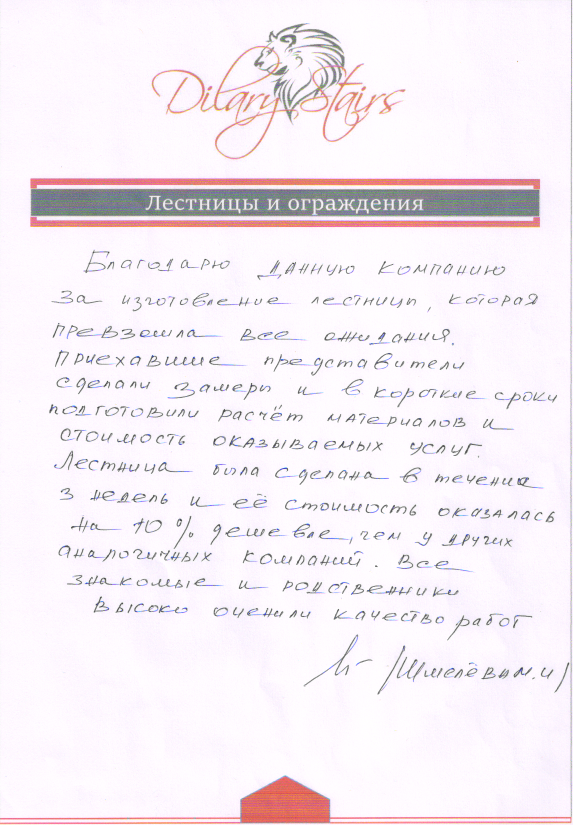 Dilary Stairs
Лестницы и ограждения
Благодарю данную компанию
за изготовление лестницы, которая
превзошла все ожидания.
Приехавшие представители
сделали замеры и в короткие сроки
подготовили расчёт материалов и
стоимость оказываемых услуг.
Лестница была сделана в течении
3 недель и её стоимость оказалась
на 10% дешевле, чем у других
аналогичных компаний. Все
знакомые и родственники
высоко оценили качество работ
/Шмелёва М.И/